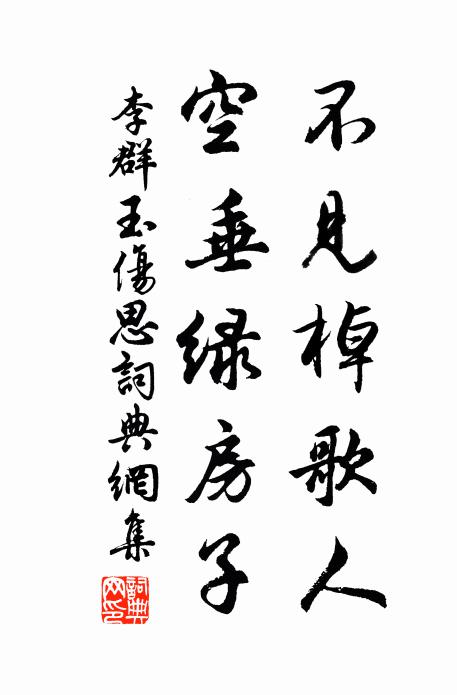 不見棹歌人
空垂緑房子
李群玉傷思詞典網集
詞典网印